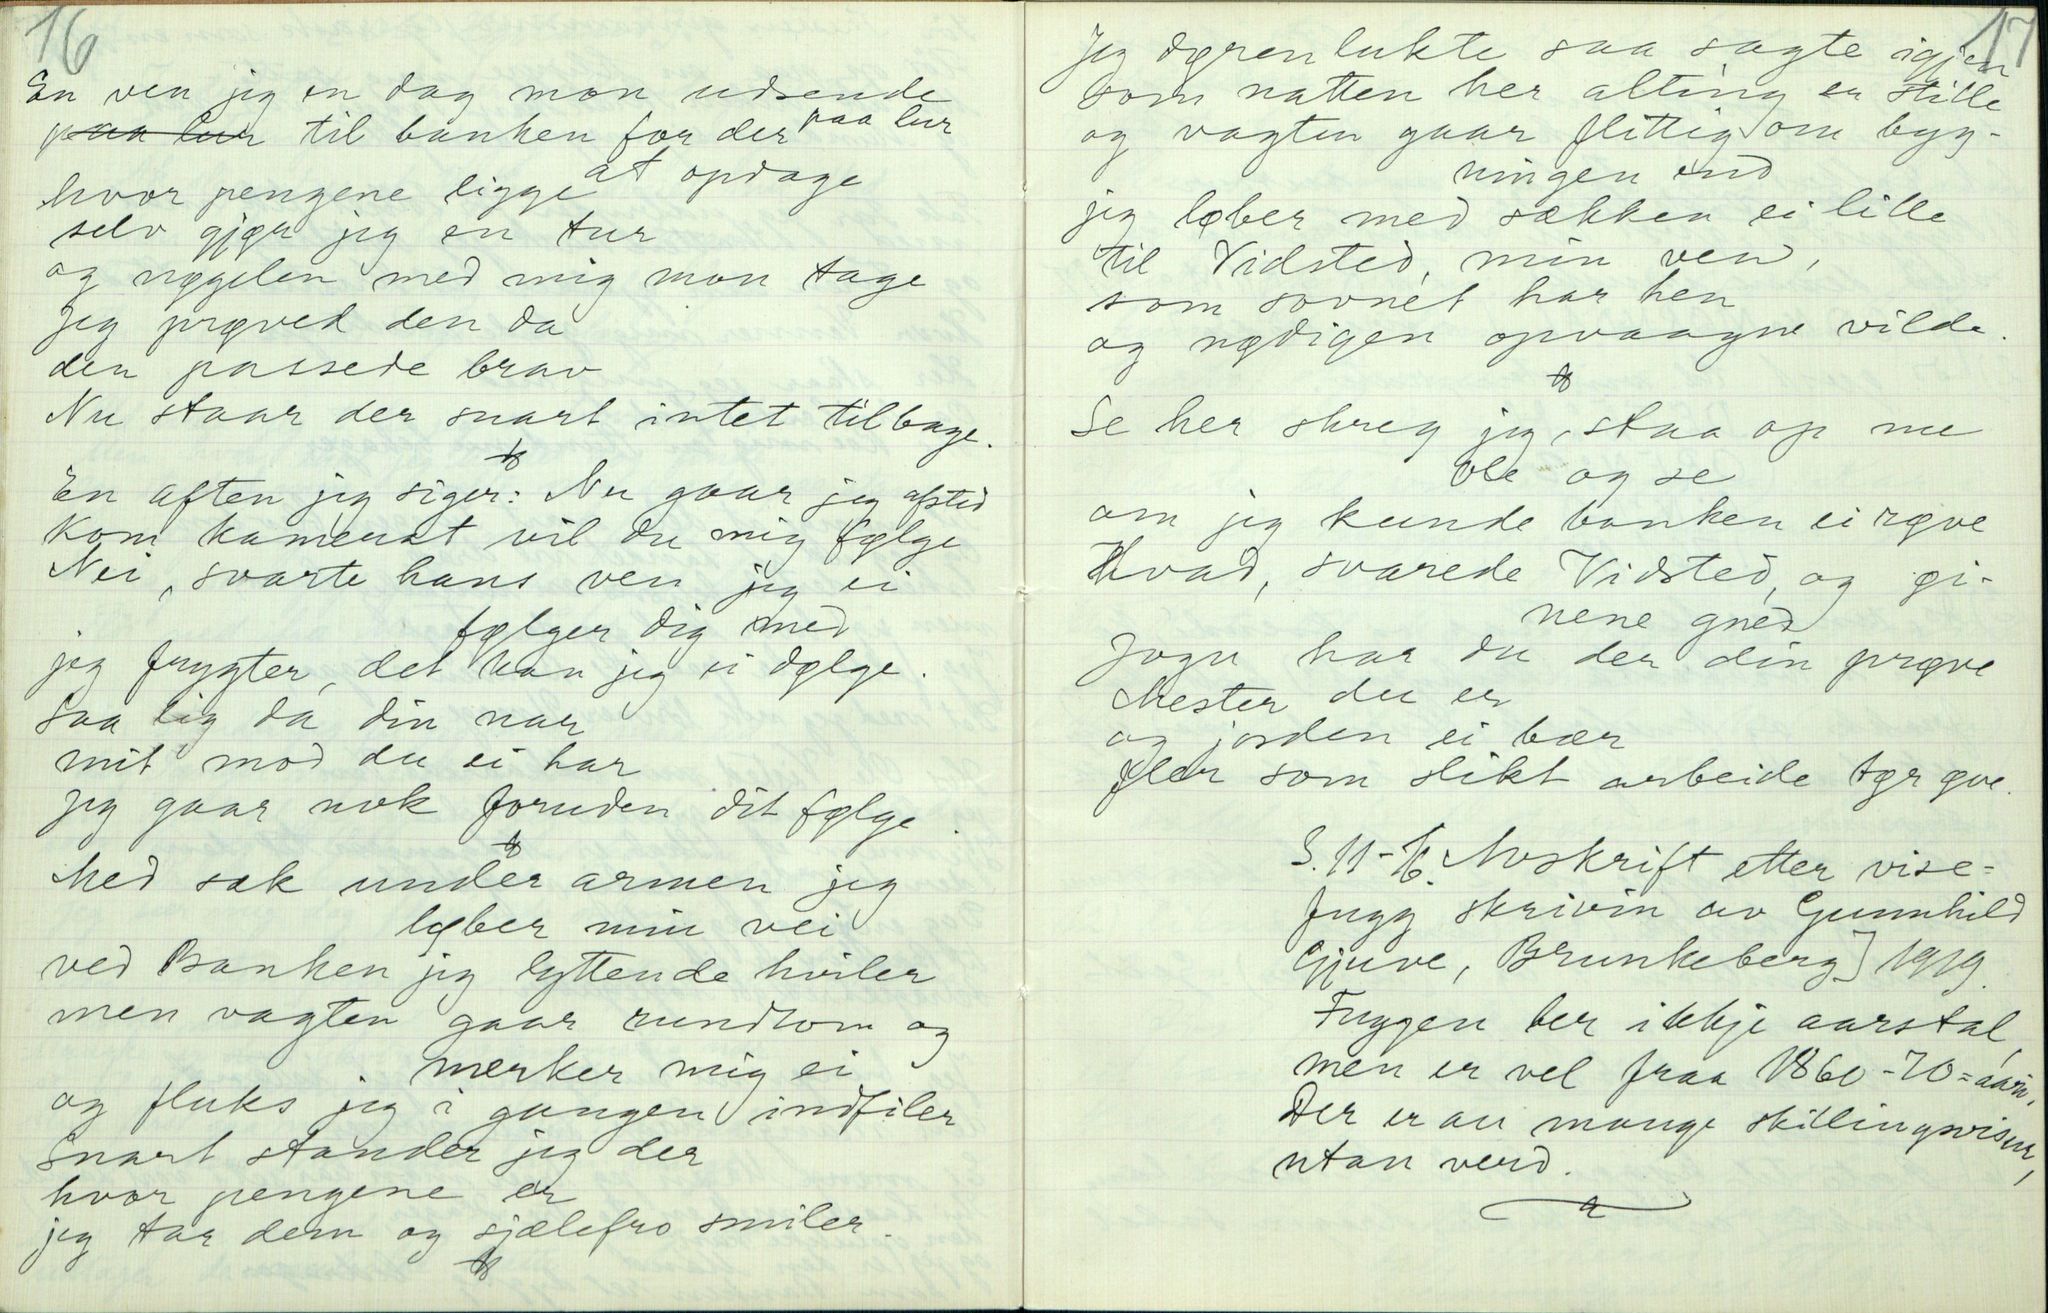 16
En ven jeg en dag mon udsende
paa lur til banken for der paa lur
at opdage
hvor pengene ligge
selv gjør jeg en tur
og nøgelen med mig mon tage
Jeg prøved den da
den passede brav
Nu staar der snart intet tilbage.
En aften jeg siger: Nu gaar jeg afsted
Kom kamerat vil du mig følge
Nei, svarte hans ven jeg ei
følger dig med
jeg frygter, det kan jeg ei dølge.
Saa lig da din nar
mit mod du ei har
jeg gaar nok foruden dit følge.
Med sæk under armen jeg
løber min vei
ved Banken jeg lyttende hviler
men vagten gaar rundtom og
merker mig ei
og fluks jeg i gangen indfiler
Snart stander jeg der
hvor pengene er
jeg tar dem og sjælefro smiler.
17
Jeg døren lukte saa sagte igjen
som natten her alting er stille
og vagten gaar flittig om byg-
ningen end
jeg løber med sækken ei lille
til Vidsted, min ven,
som sovnet har hen
og nødigen opvaagne vilde.
Se her skreg jeg, staa op me
Ole og se
om jeg kunde banken ei røve
Hvad, svarede Vidsted, og øi-
nene gned
Jogu har du der din prøve
Mester du er
og jorden ei bær
fler som slikt arbeide tør øve.
S. 11-16. Avskrift etter vise-
fugg skrivin av Gunnhild
Gjuve, Brunkeberg] 1919.
Fuggen ber ikkje aarstal,
men er vel fraa 1860-70=aari.
Der er au mange skillingsvisur,
utan verd.